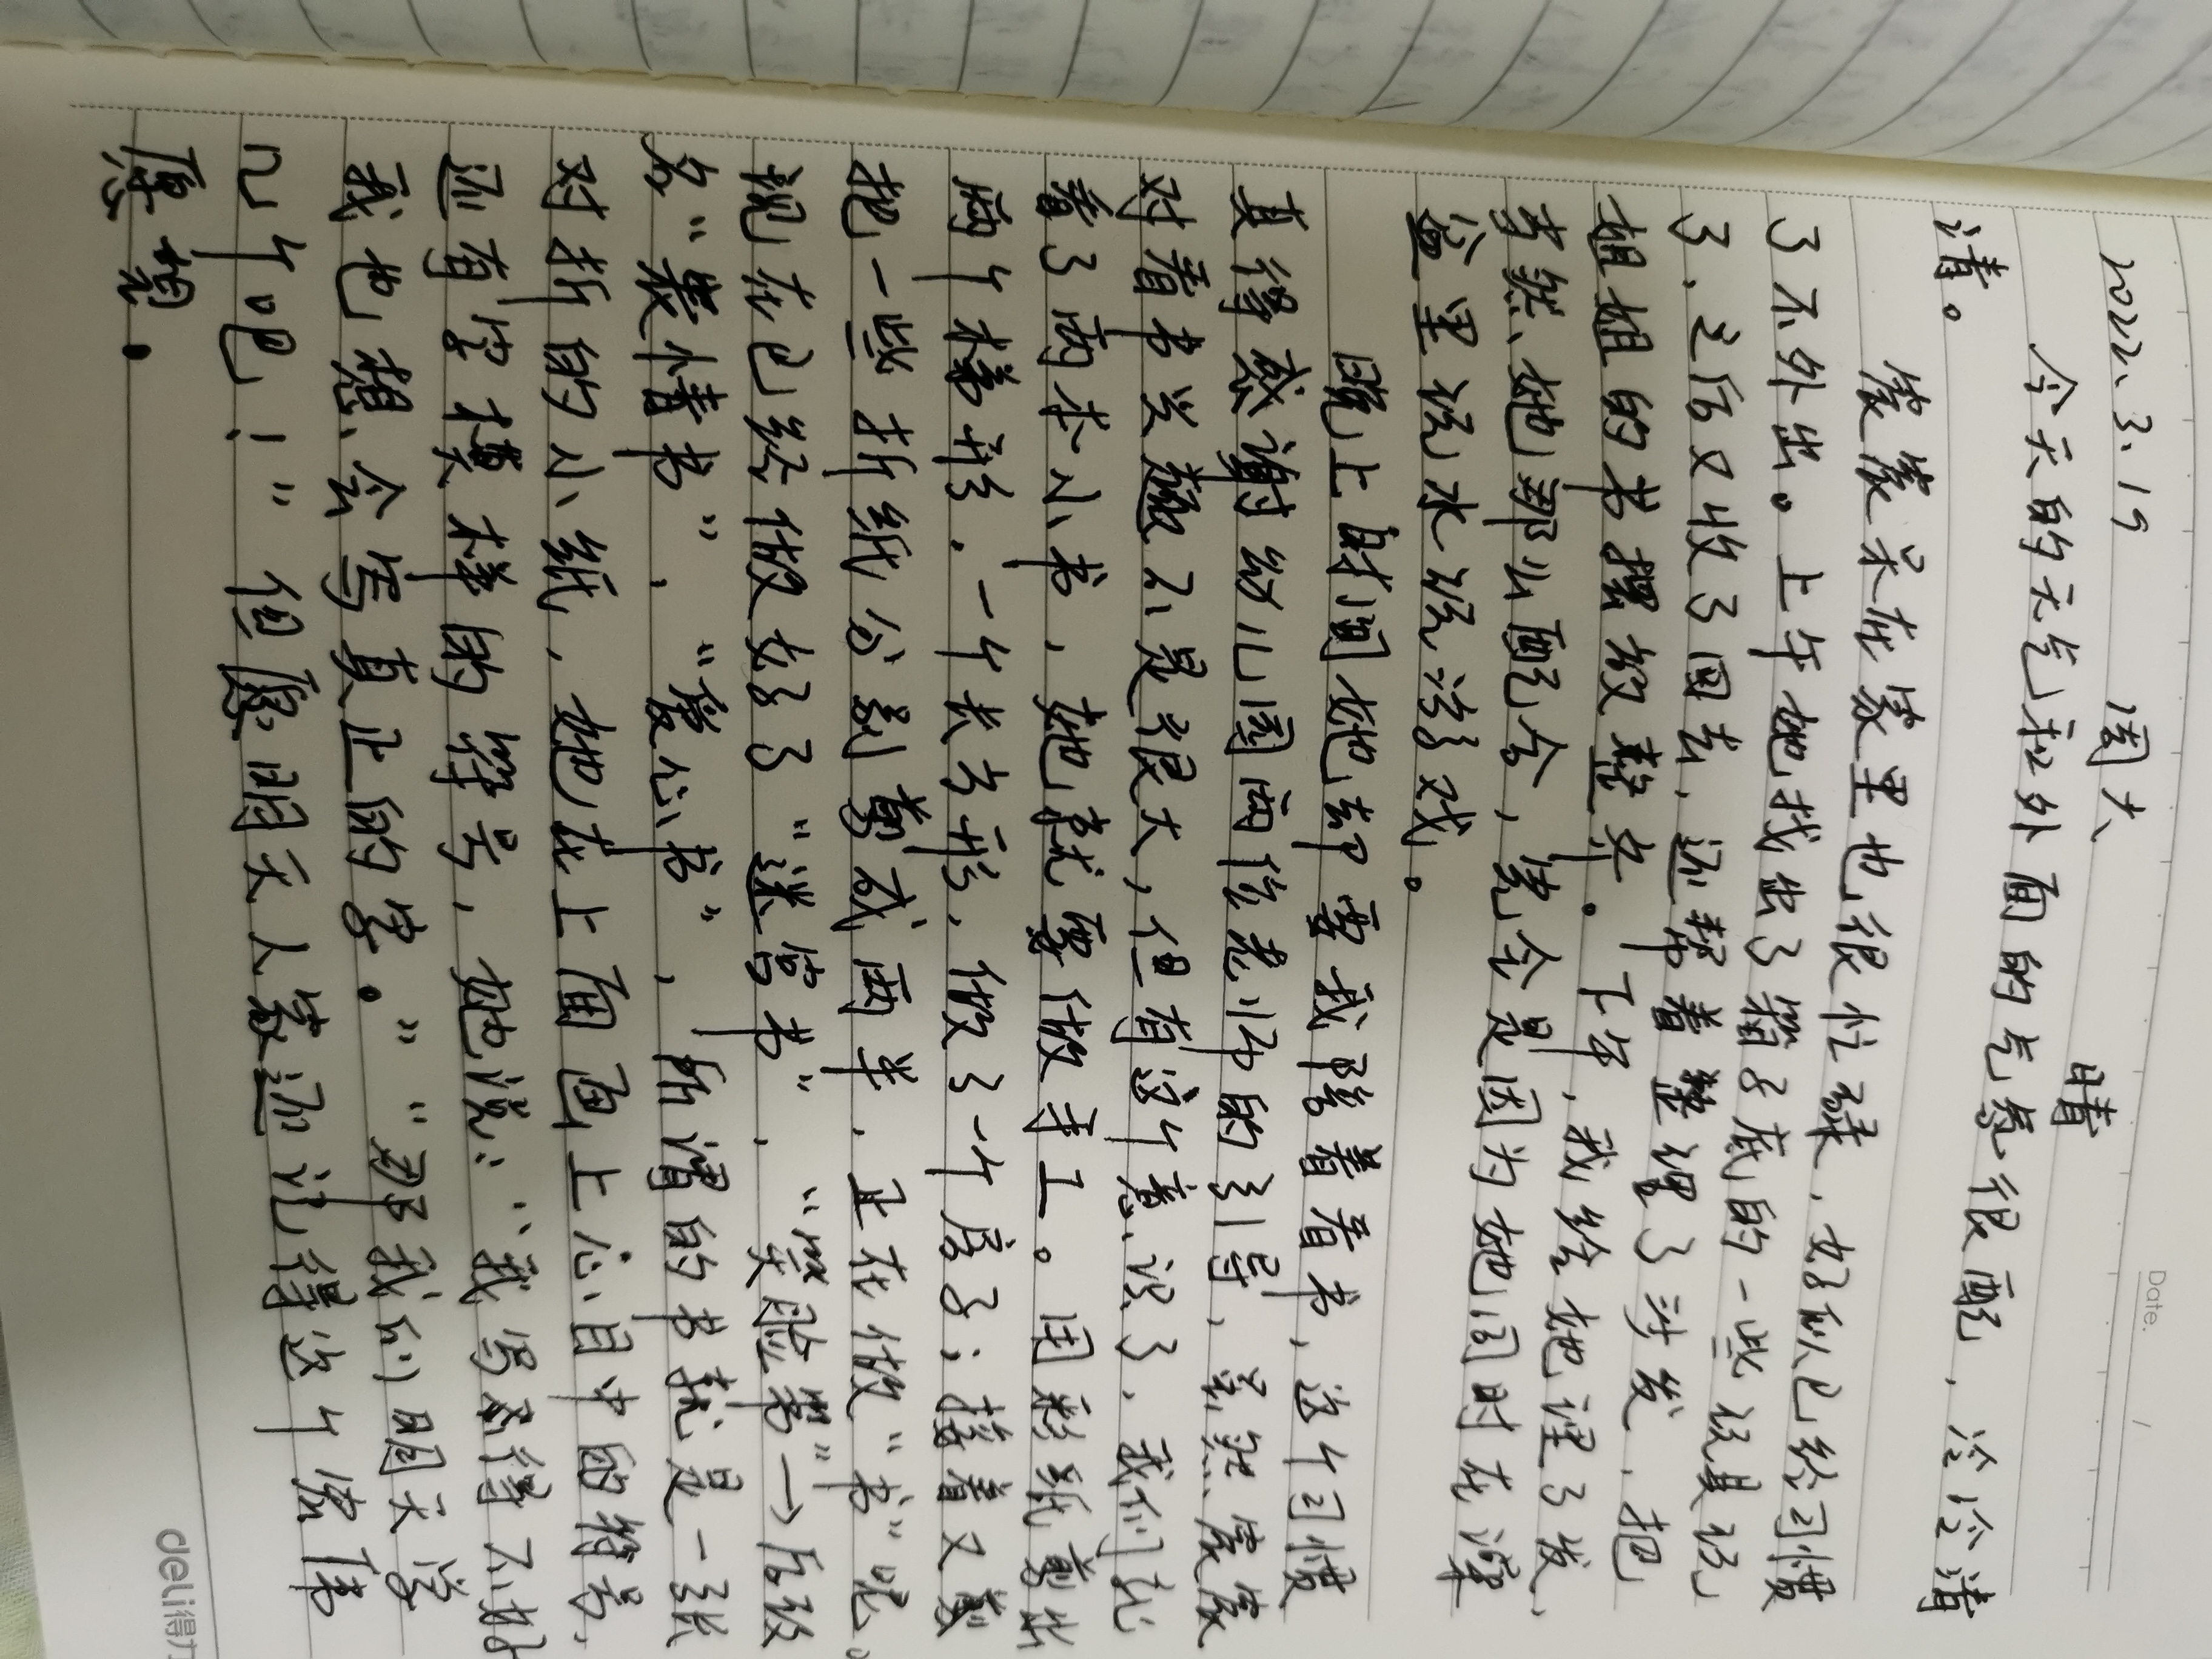 Date. /
2022.3.19 周六 晴
今天的天气和外面的气氛很配，冷冷清
清。
家家呆在家里也很忙碌，好似已经习惯
了不外出。上午她找出了箱子底的一些玩具玩
了，之后又收了回去，还帮着整理了沙发，把
姐姐的书摆放整齐。下午，我给她理了发，
当然，她那么配合，完全是因为她同时在澡
盆里玩水玩沙子戏。
晚上时间她却要我陪着看书，这个习惯
真得感谢幼儿园两位老师的引导，虽然家家
对看书兴趣不是很大，但有这个意识了，我们就
看了两本小书，她就要做手工。用彩纸剪出
两个梯形，一个长方形，做了一个房子；接着又剪
把一些折纸分别剪成两半，正在做“书”呢。
现在已经做好了“迷宫书”，“笑脸书”→后改
名“表情书”，“爱心书”，所谓的书就是一张
对折的小纸，她在上面画上心目中的符号，
还有字模样的符号，她说：“我写不得不好
我也想会写真正的字。”“那我们明天学
几个吧！”但愿明天人家还记得这个伟
愿望。
deli得力